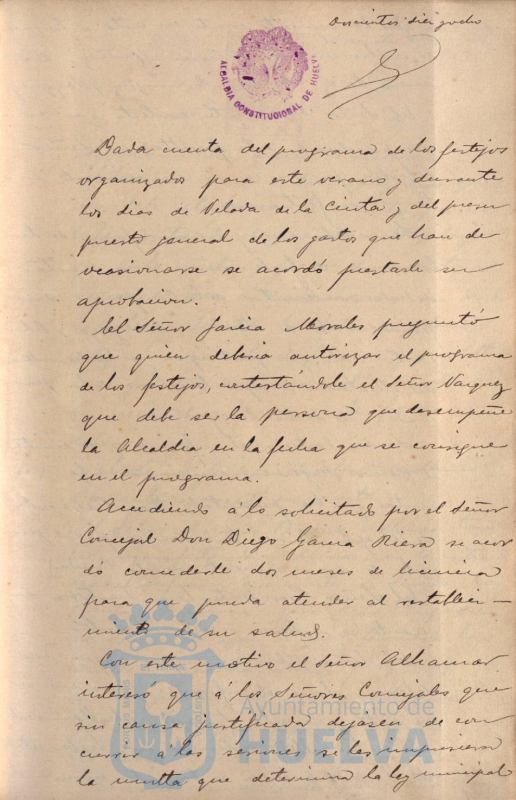 Doscientos diez y ocho
ALCALDIA CONSTITUCIONAL DE HUELVA
Dada cuenta del programa de los festejos
organizados para este verano y durante
los dias de Velada de la Cinta y del presu
puesto general de los gastos que han de
ocasionarse se acordó prestarle su
aprobacion.
El Señor Garcia Morales preguntó
que quien deberia autorizar el programa
de los festejos, contestándole el Señor Vazquez
que debe ser la persona que desempeñe
la Alcaldia en la fecha que se consigne
en el programa.
Accediendo á lo solicitado por el Señor
Concejal Don Diego Garcia Riera se acor
dó concederle dos meses de licencia
para que pueda atender al restableci-
miento de su salud.
Con este motivo el Señor Alhamar
intereso que á los Señores Concejales que
sin causa justificada dejasen de con
currir á las sesiones se les impusiera
la multa que determina la ley municipal
Ayuntamiento de
HUELVA